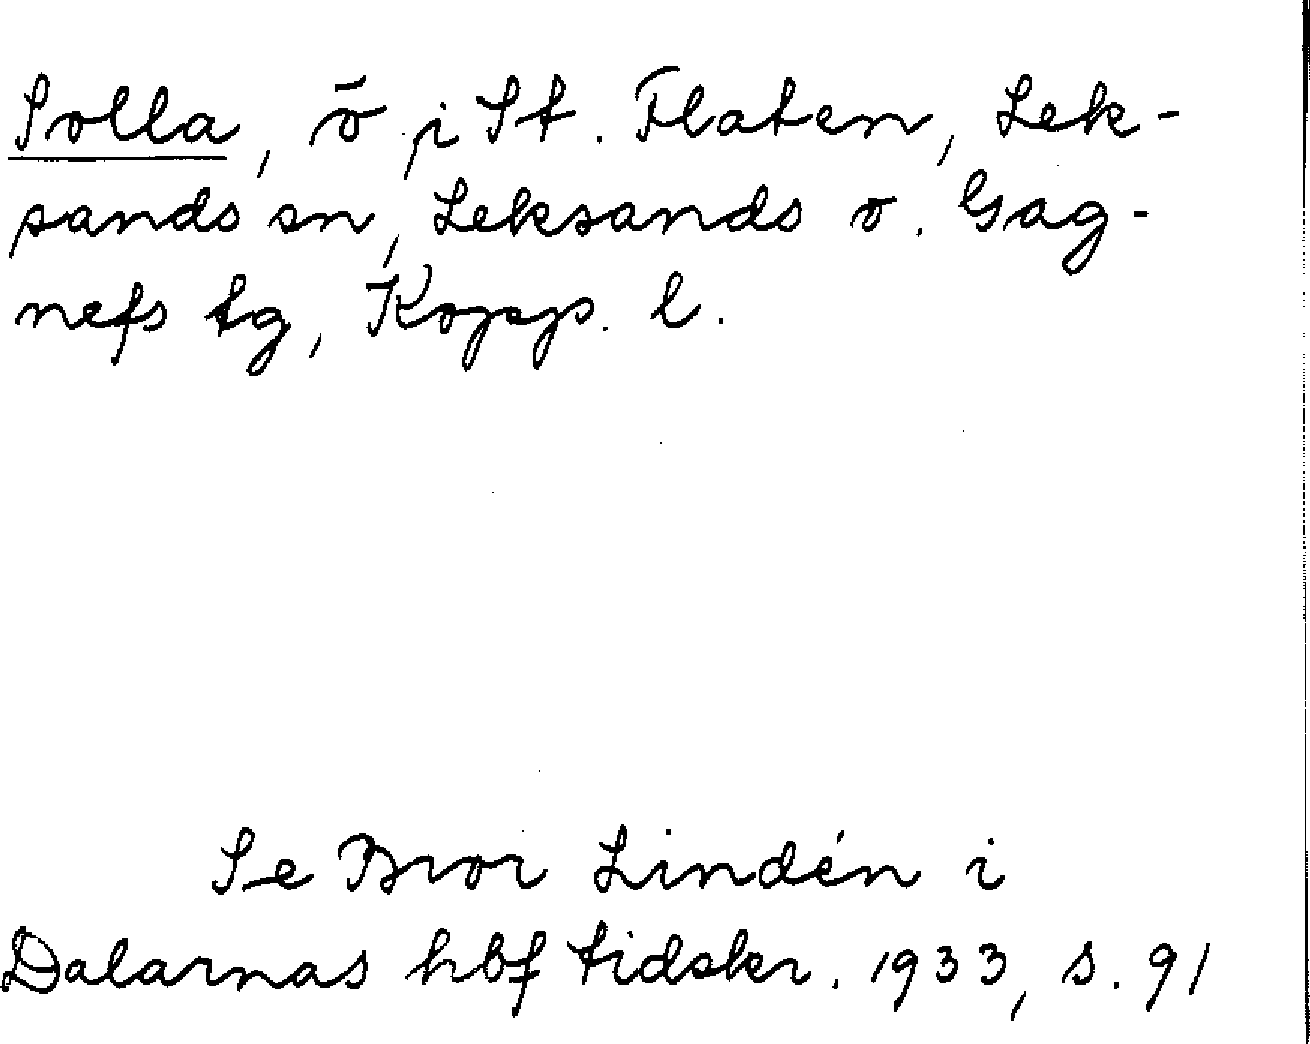 Solla, ö i St. Flaten, Lek-
sands sn, Leksands o. Gag-
nefs tg, Kopp. l.
Se Bror Lindén i
Dalarnas hbf tidskr. 1933, s. 91